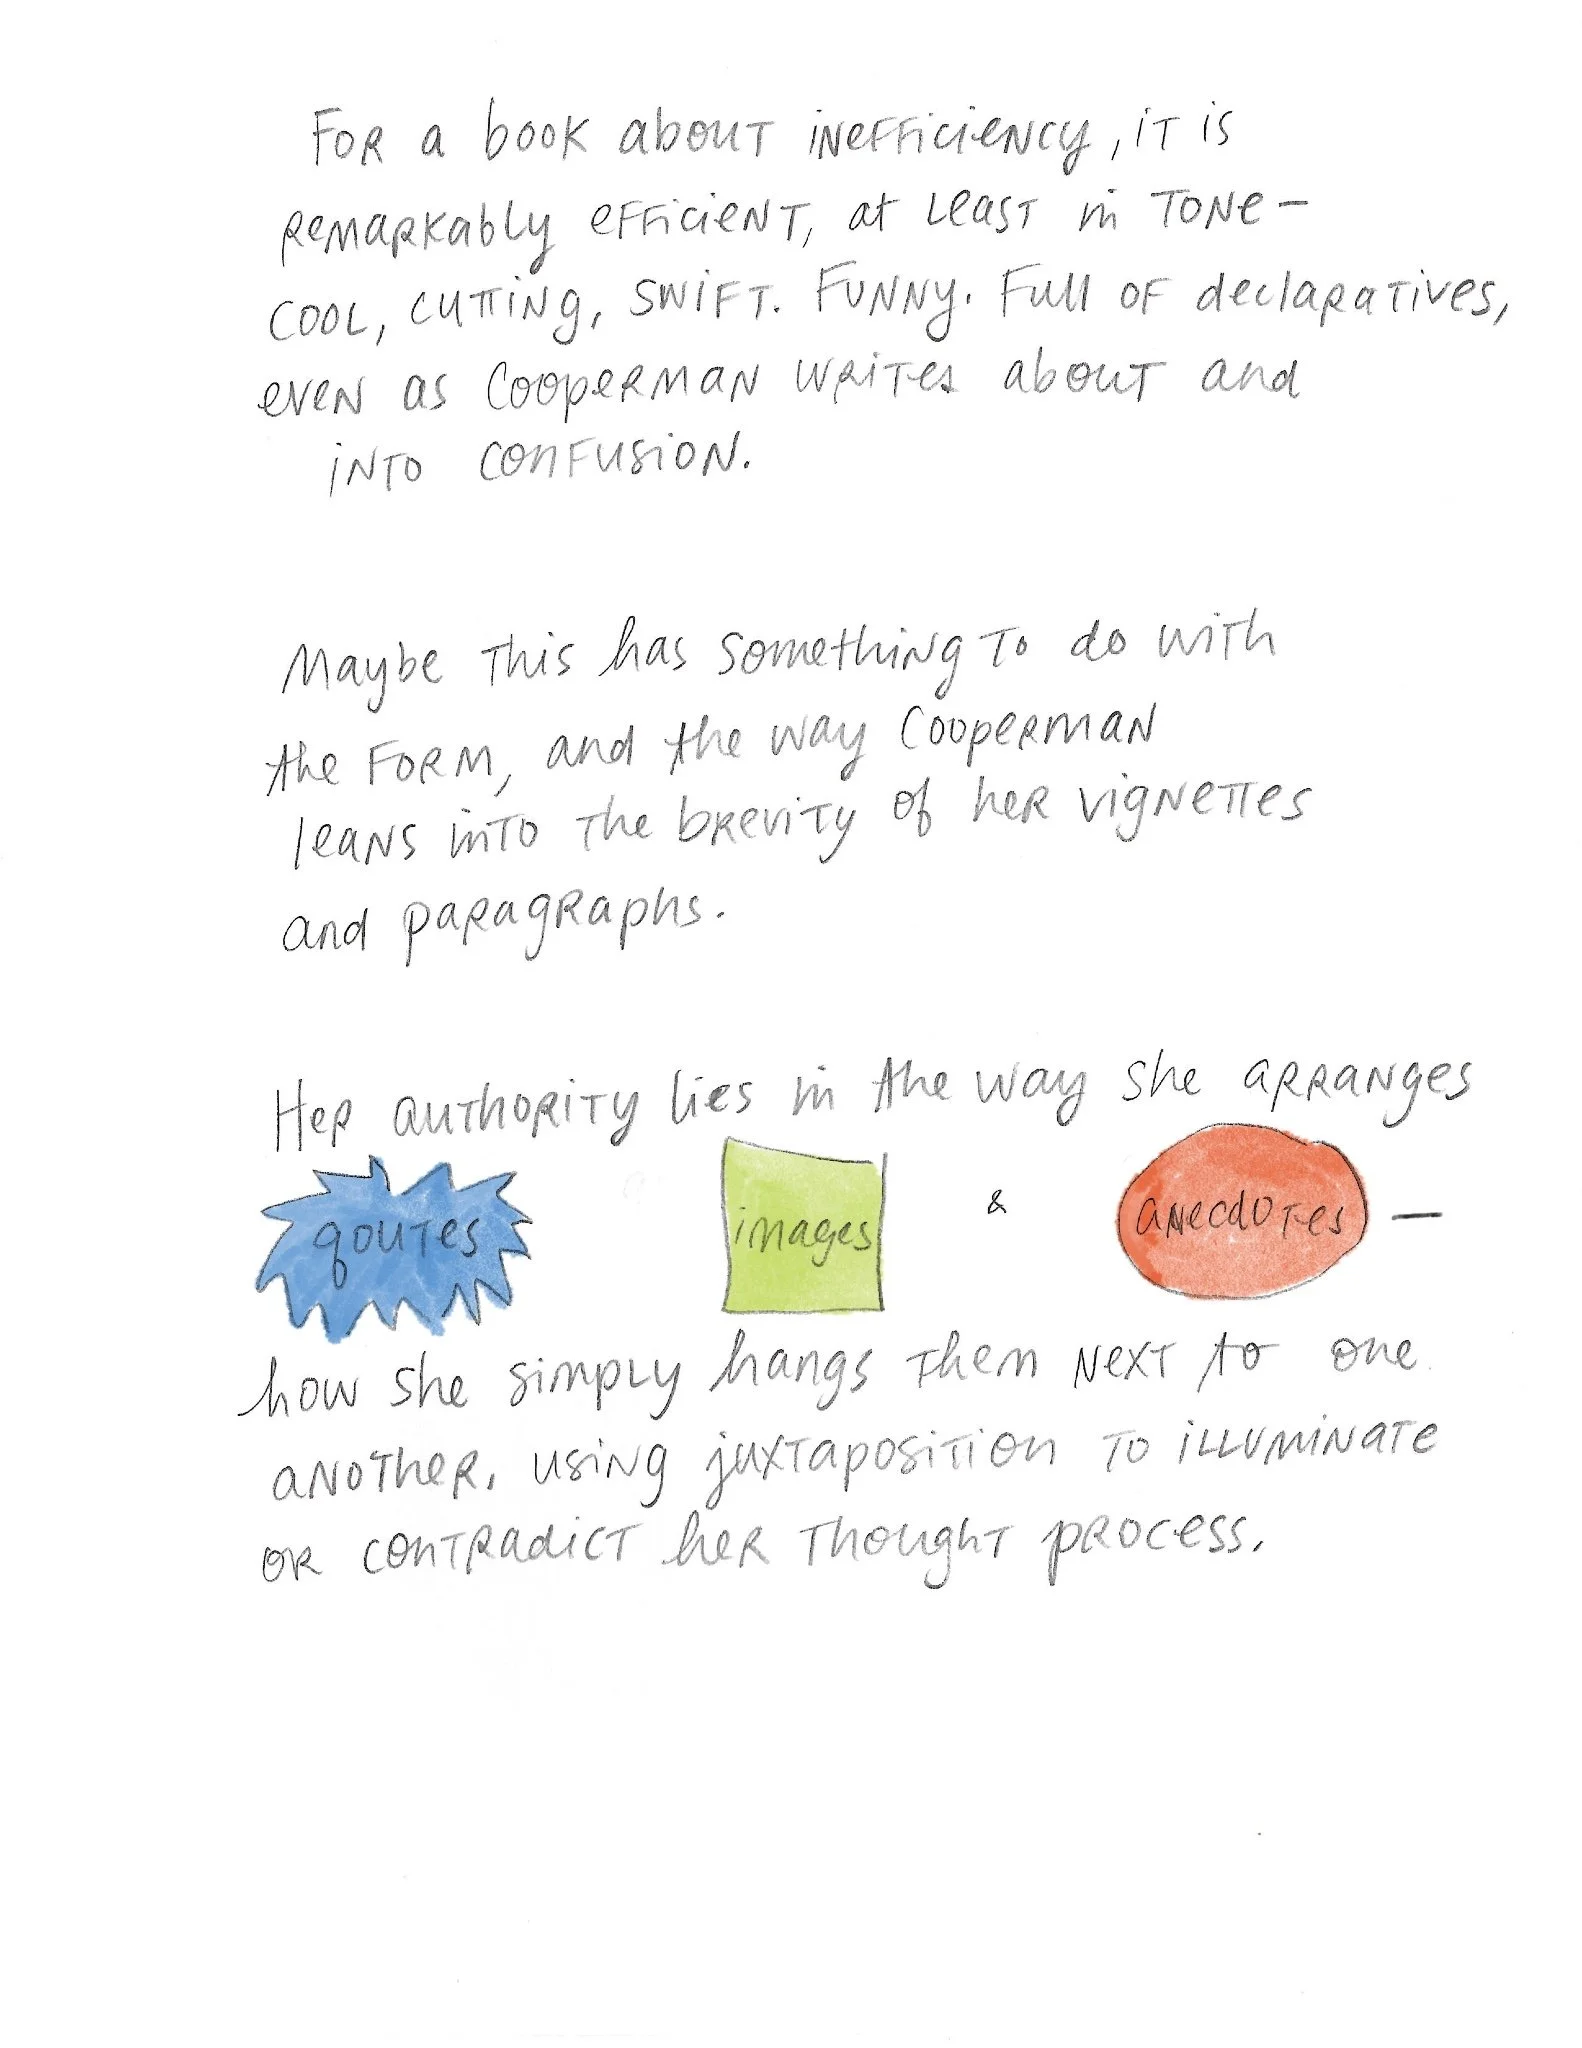 For a book about inefficiency, it is
remarkably efficient, at least in tone –
cool, cutting, swift. Funny. Full of declaratives,
even as Cooperman writes about and
into confusion.
Maybe this has something to do with
the form, and the way Cooperman
leans into the brevity of her vignettes
and paragraphs.
Her authority lies in the way she arranges
qoutes images & anecdotes —
how she simply hangs them next to one
another, using juxtaposition to illuminate
or contradict her thought process.